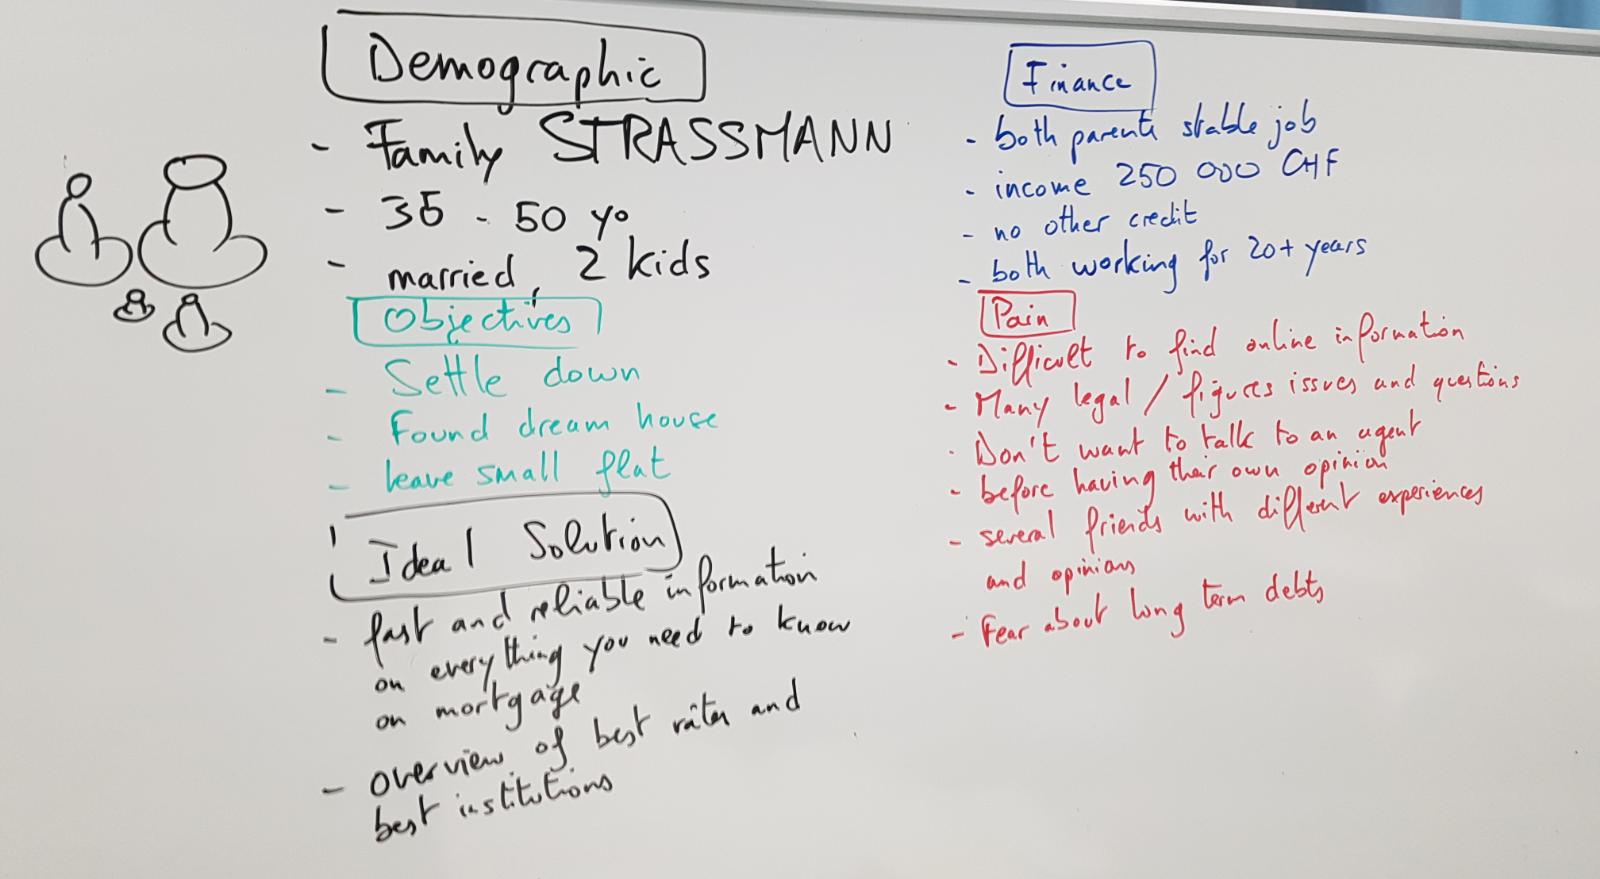 Demographic
- Family STRASSMANN
- 35 - 50 yo
- married, 2 kids
Objectives
- Settle down
- Found dream house
- leave small flat
Ideal Solution
- fast and reliable information
on everything you need to know
on mortgage
- overview of best rates and
best institutions
Finance
- both parents stable job
- income 250 000 CHF
- no other credit
- both working for 20+ years
Pain
- Difficult to find online information
- Many legal / figures issues and questions
- Don't want to talk to an agent
- before having their own opinion
- several friends with different experiences
and opinions
- Fear about long term debts